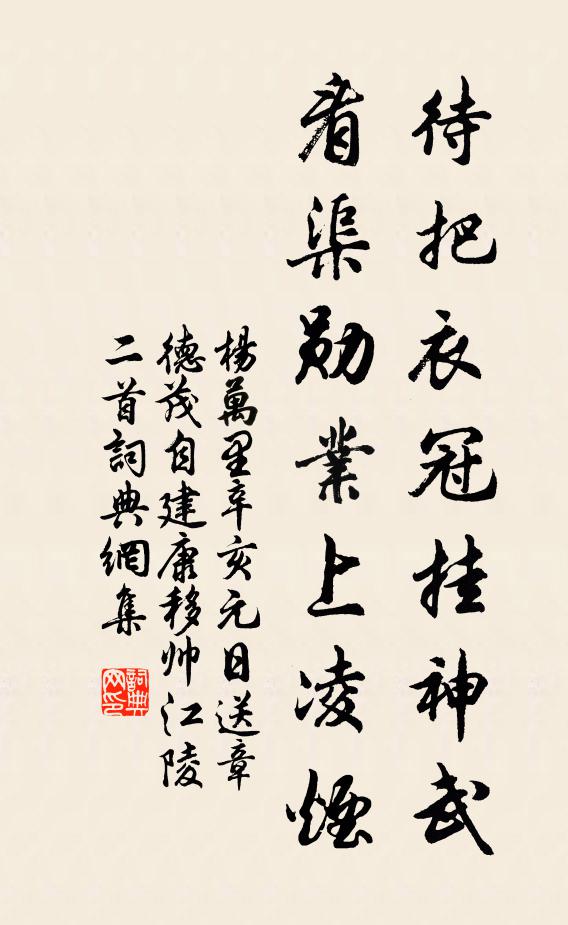 待把衣冠挂神武
看渠勋業上凌煙
楊萬里辛亥元日送章
德茂自建康移帅江陵
二首詞典網集
詞典
网印